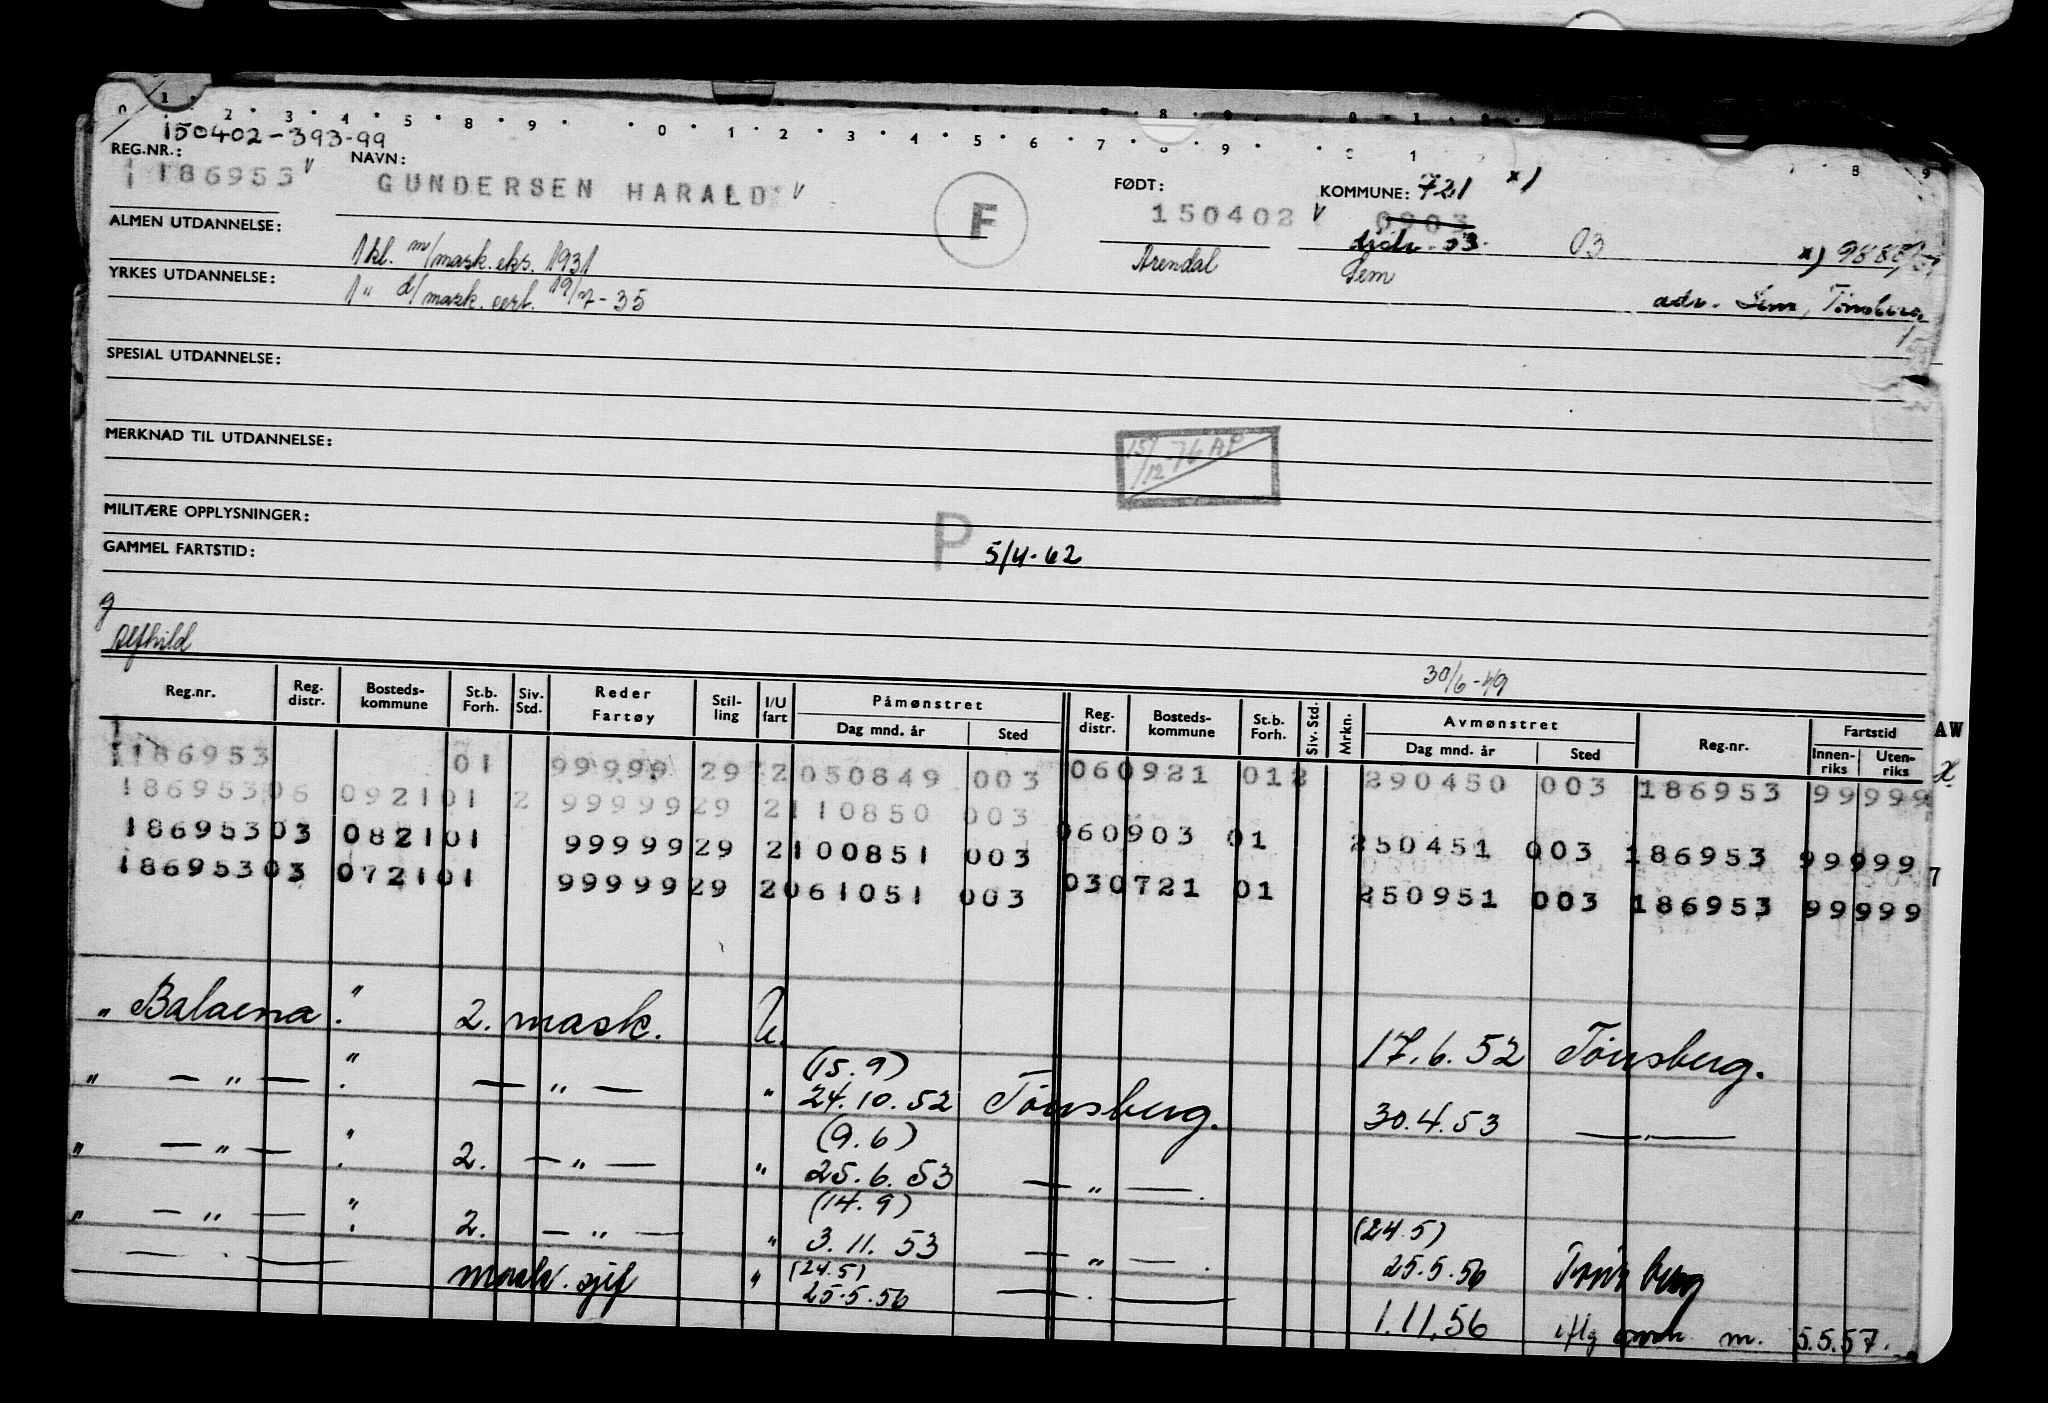 0 1 2 3 4 5 8 9 0 1 2 3 4 5 6 7 8 9
150402-393-99
REG.NR.: NAVN: FØDT: KOMMUNE: 721 x)
186953 v GUNDERSEN HARALD v F 150402 v 0903
03
ALMEN UTDANNELSE: 1 kl. m/mask.eks. 1931 Arendal Sem
YRKES UTDANNELSE: 1 " d/mask.cert. 19/7-35
adr. Sem, Tønsberg
SPESIAL UTDANNELSE:
MERKNAD TIL UTDANNELSE: 15/12-76 AP
MILITÆRE OPPLYSNINGER:
GAMMEL FARTSTID: P 5/4-62
g
Alfhild
30/6-49
Reg.nr. Reg. distr. Bosteds-kommune St.b. Forh. Siv. Std. Reder Fartøy Stil-ling I/U fart Påmønstret Dag mnd. år Sted Reg. distr. Bosteds-kommune St.b. Forh. Siv. Std. Mrkn. Avmønstret Dag mnd. år Sted Reg.nr. Fartstid Innen-riks Uten-riks AW
186953 01 99999 29 2 050849 003 060921 012 290450 003 186953 99999 x
186953 06 0921 01 2 99999 29 2 110850 003
186953 03 0821 01 99999 29 2 100851 003 060903 01 250451 003 186953 99999
186953 03 0721 01 99999 29 2 061051 003 030721 01 250951 003 186953 99999 7
" Balaena " 2. mask. U. 17.6.52 Tønsberg.
" — " — " — " — " (15.9) 24.10.52 Tønsberg. 30.4.53 — " —
" — " — " 2. — " — " (9.6) 25.6.53 — " —.
" — " — " 2. — " — " (14.9) 3.11.53 — " —. (24.5) 25.5.56 Tønsberg
— . — mask. sjef " (24.5) 25.5.56 — . — 1.11.56 iflg m. 5.5.57.